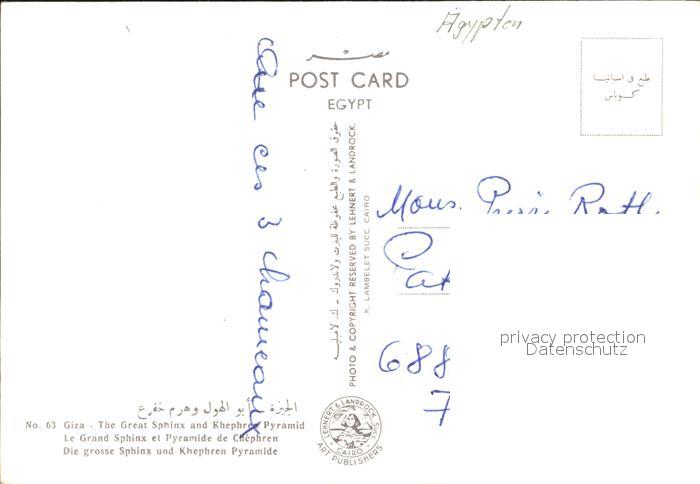 Ägypten
مصر
POST CARD
EGYPT
طبع فى اسبانيا
que ces 3 chameaux
حقوق الصورة والطبع محفوظة للينرت ولاندروك - ك. لامبليه
PHOTO & COPYRIGHT RESERVED BY LEHNERT & LANDROCK.
K. LAMBELET SUCC. CAIRO
Mons.
688
7
privacy protection
Datenschutz
الجيزة - أبو الهول وهرم خفرع
No. 63 Giza - The Great Sphinx and Khephren Pyramid
Le Grand Sphinx et Pyramide de Chephren
Die grosse Sphinx und Khephren Pyramide
LEHNERT & LANDROCK SUCC.
CAIRO
ART PUBLISHERS